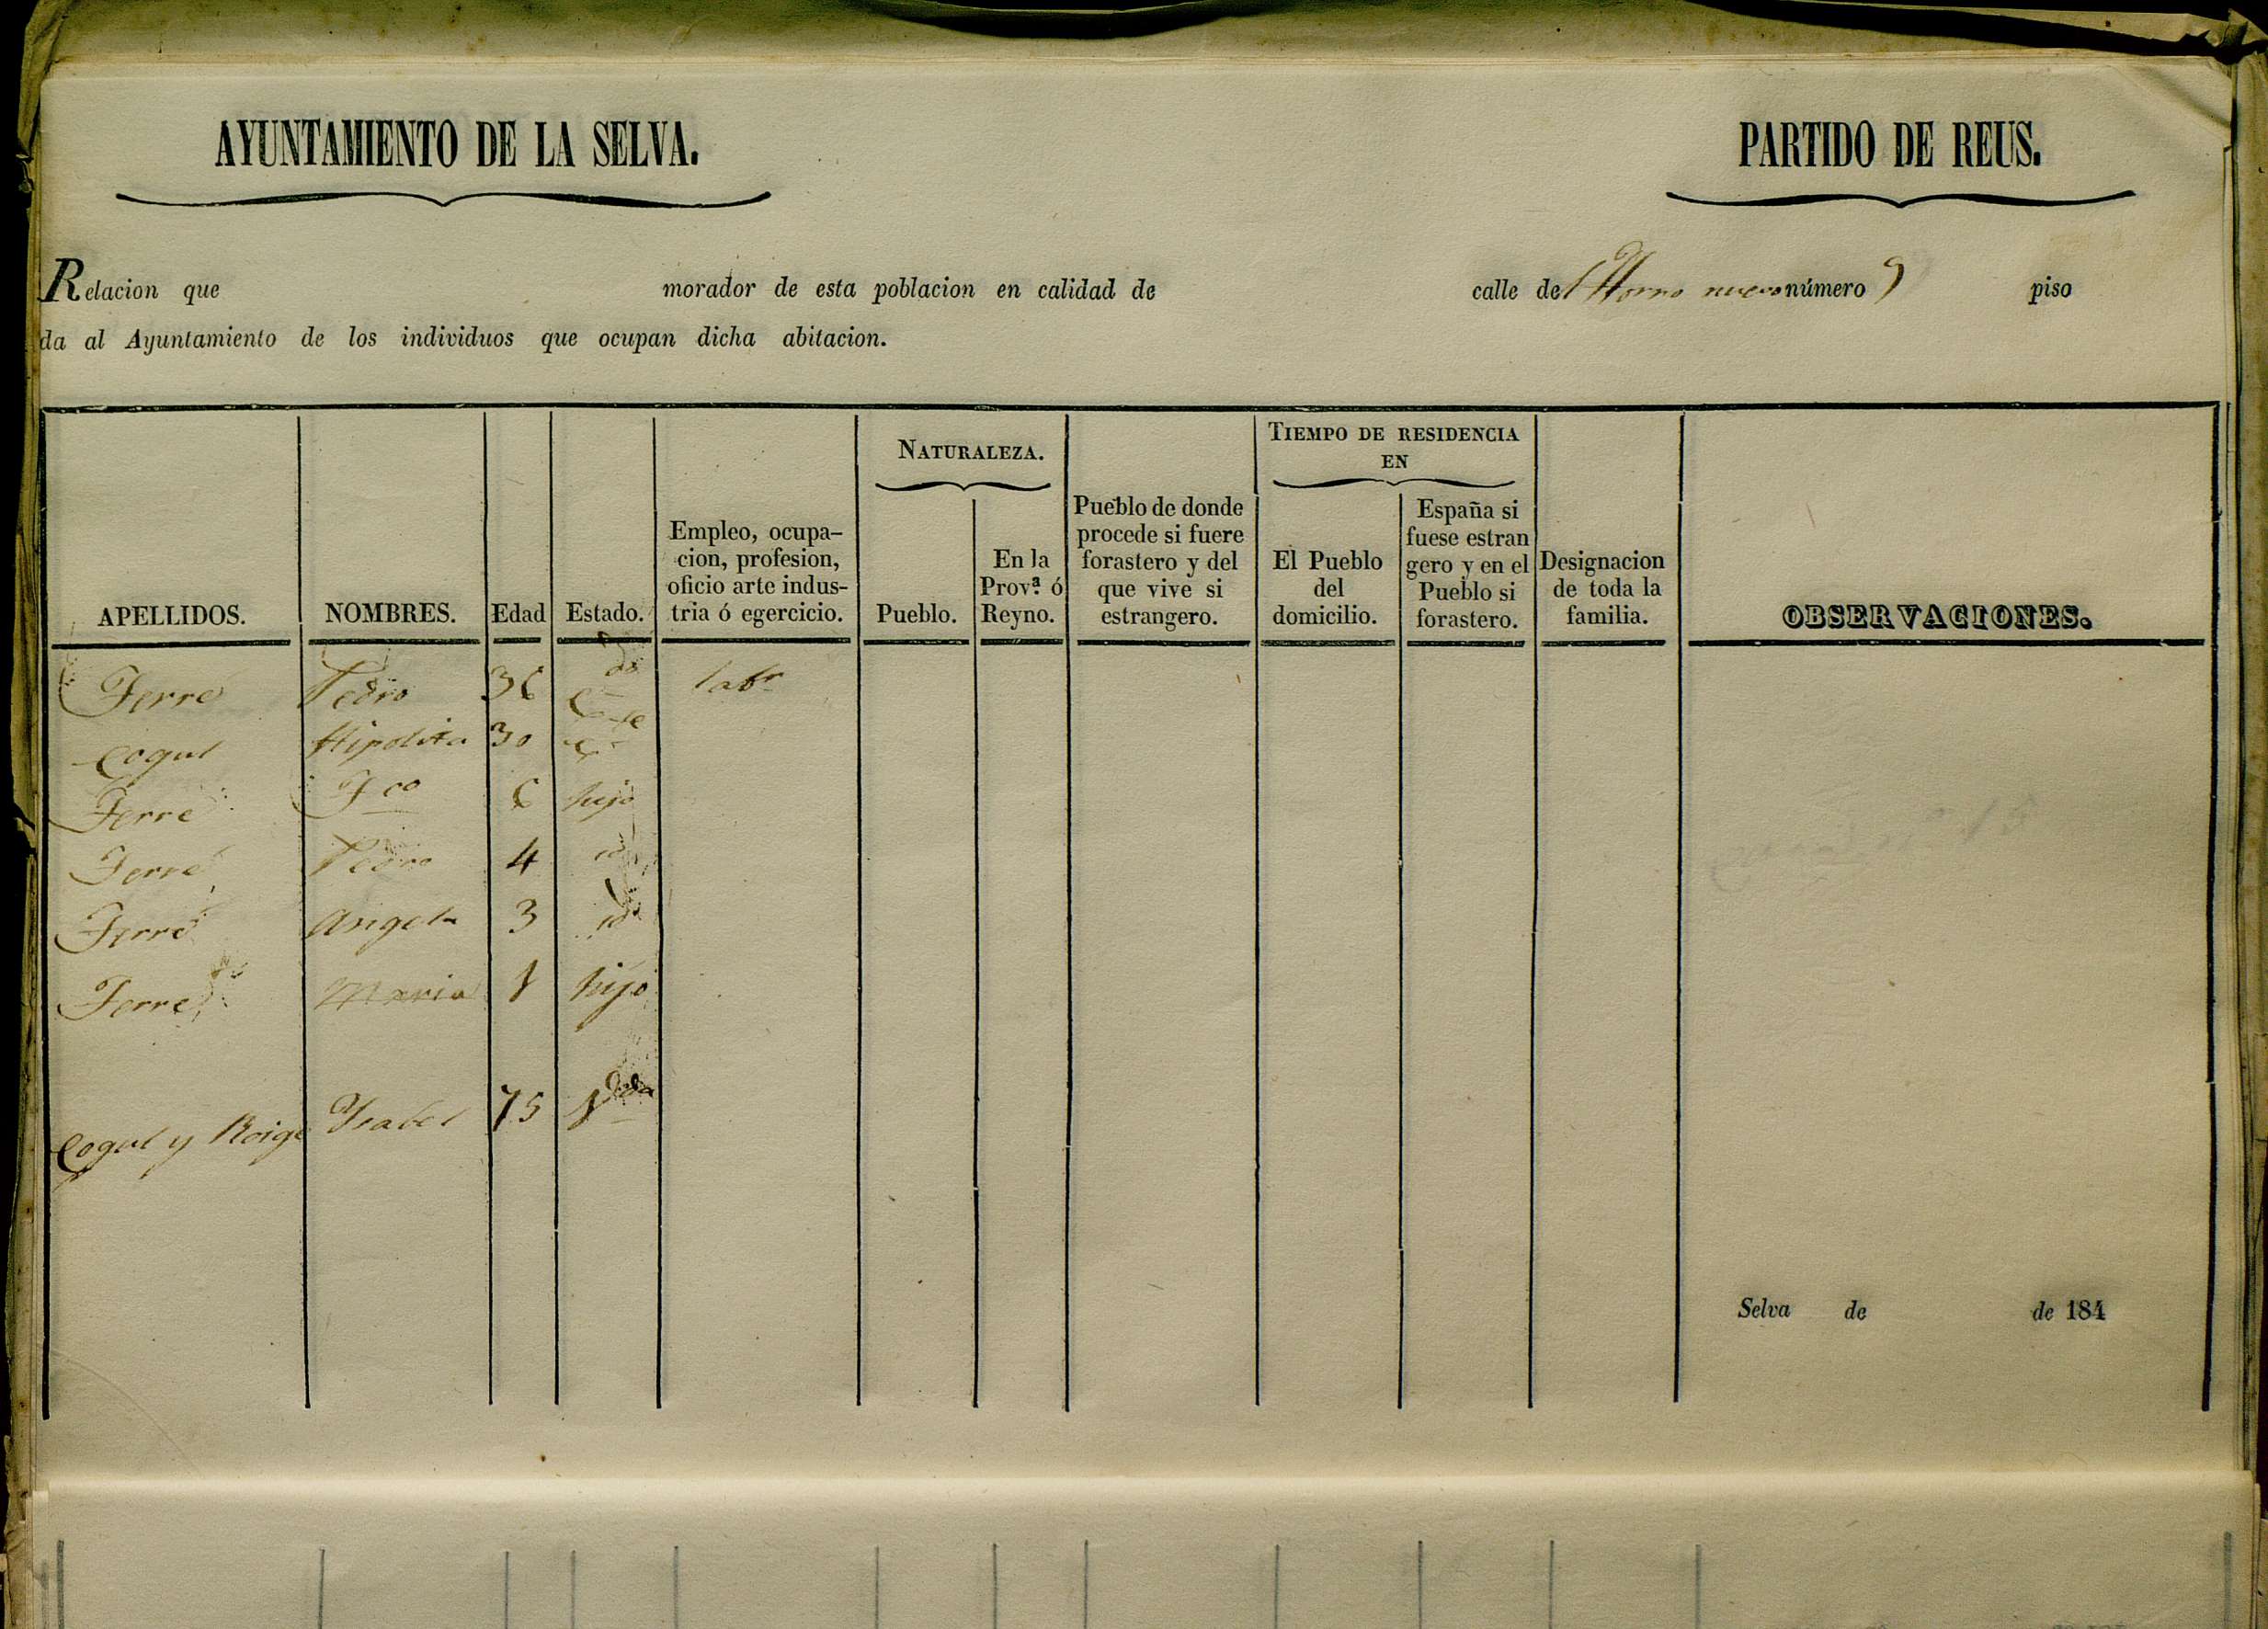 AYUNTAMIENTO DE LA SELVA. PARTIDO DE REUS.
Relacion que morador de esta poblacion en calidad de calle del Horno nuevo número 9 piso
da al Ayuntamiento de los individuos que ocupan dicha abitacion.
APELLIDOS. NOMBRES. Edad Estado. Empleo, ocupa-
cion, profesion,
oficio arte indus-
tria ó egercicio. NATURALEZA.
Pueblo. En la
Prov.ª ó
Reyno. Pueblo de donde
procede si fuere
forastero y del
que vive si
estrangero. TIEMPO DE RESIDENCIA
EN
El Pueblo
del
domicilio. España si
fuese estran
gero y en el
Pueblo si
forastero. Designacion
de toda la
familia. OBSERVACIONES.
Ferré Pedro 36 C.do labr
Cogul Hipolita 30 C.te
Ferré Fco 6 hijo
Ferré Pedro 4 id
Ferré Angela 3 id
Ferré Maria 1 hijo
Cogul y Roige Ysabel 75 Vda
Selva de de 184